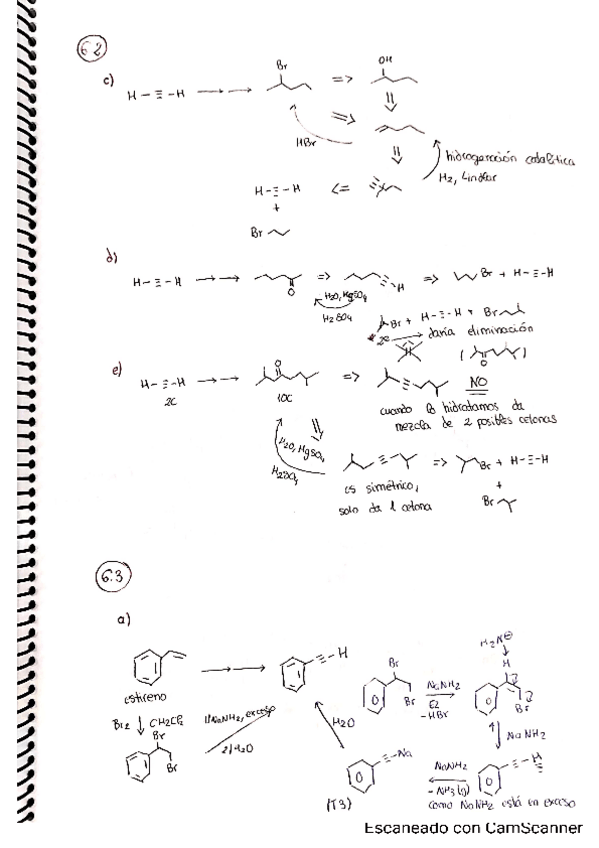 6.2
c)
H-≡-H
Br
=>
OH
HBr
hidrogenación catalítica
H2, Lindlar
H-≡-H
<=
+
Br
d)
H-≡-H
O
=>
H
=>
Br + H-≡-H
H2O, HgSO4
H2SO4
Br + H-≡-H + Br
2º
daría eliminación
e)
H-≡-H
2C
O
10C
=>
NO
cuando lo hidratamos da
mezcla de 2 posibles cetonas
H2O, HgSO4
H2SO4
=>
Br + H-≡-H
+
Br
es simétrico,
solo da 1 cetona
6.3
a)
estireno
H
Br
Br
NaNH2
E2
-HBr
H2N⊖
H
Br
Br2
CH2Cl2
Br
Br
1) NaNH2, exceso
2) H2O
H2O
NaNH2
Na
NaNH2
- NH3 (g)
H
como NaNH2 está en exceso
(T3)
Escaneado con CamScanner